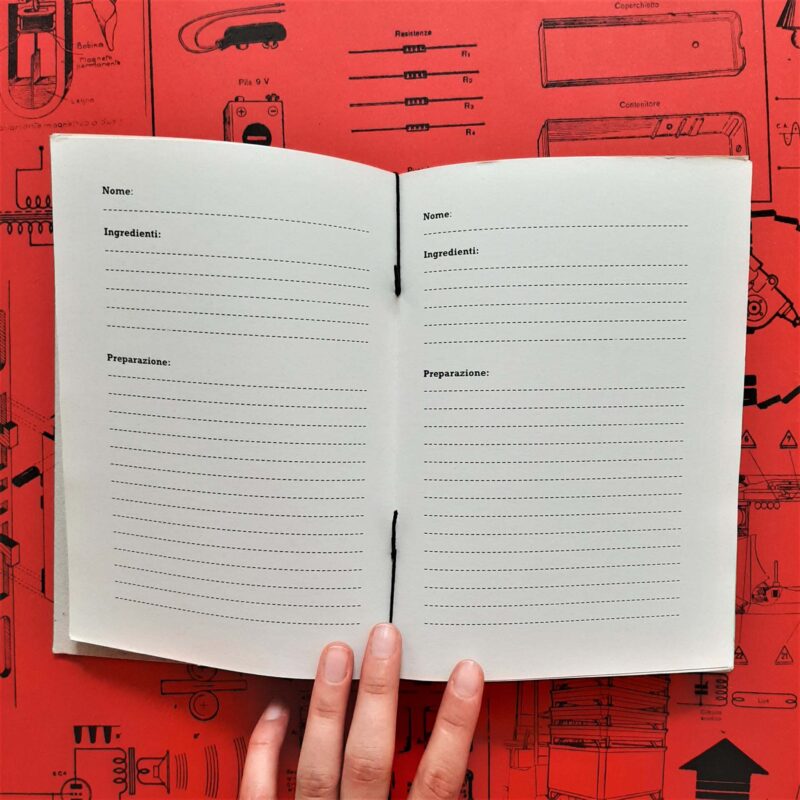 Bobina
Magnete
permanente
Legno
Pila 9 V
Resistenze
R1
R2
R3
R4
Coperchietto
Contenitore
Nome:
Ingredienti:
Preparazione:
Nome:
Ingredienti:
Preparazione:
6
7
22
21